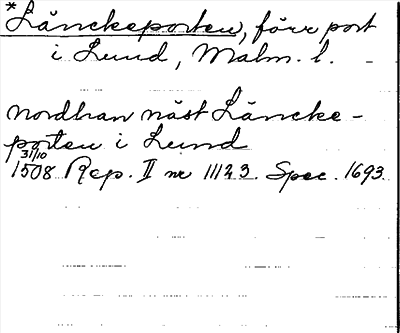 *Länckeporten, förr port
i Lund, Malm. l.
nordhan näst Läncke-
porten i Lund
31/10
1508 Rep. II nr 11123. Spec. 1693